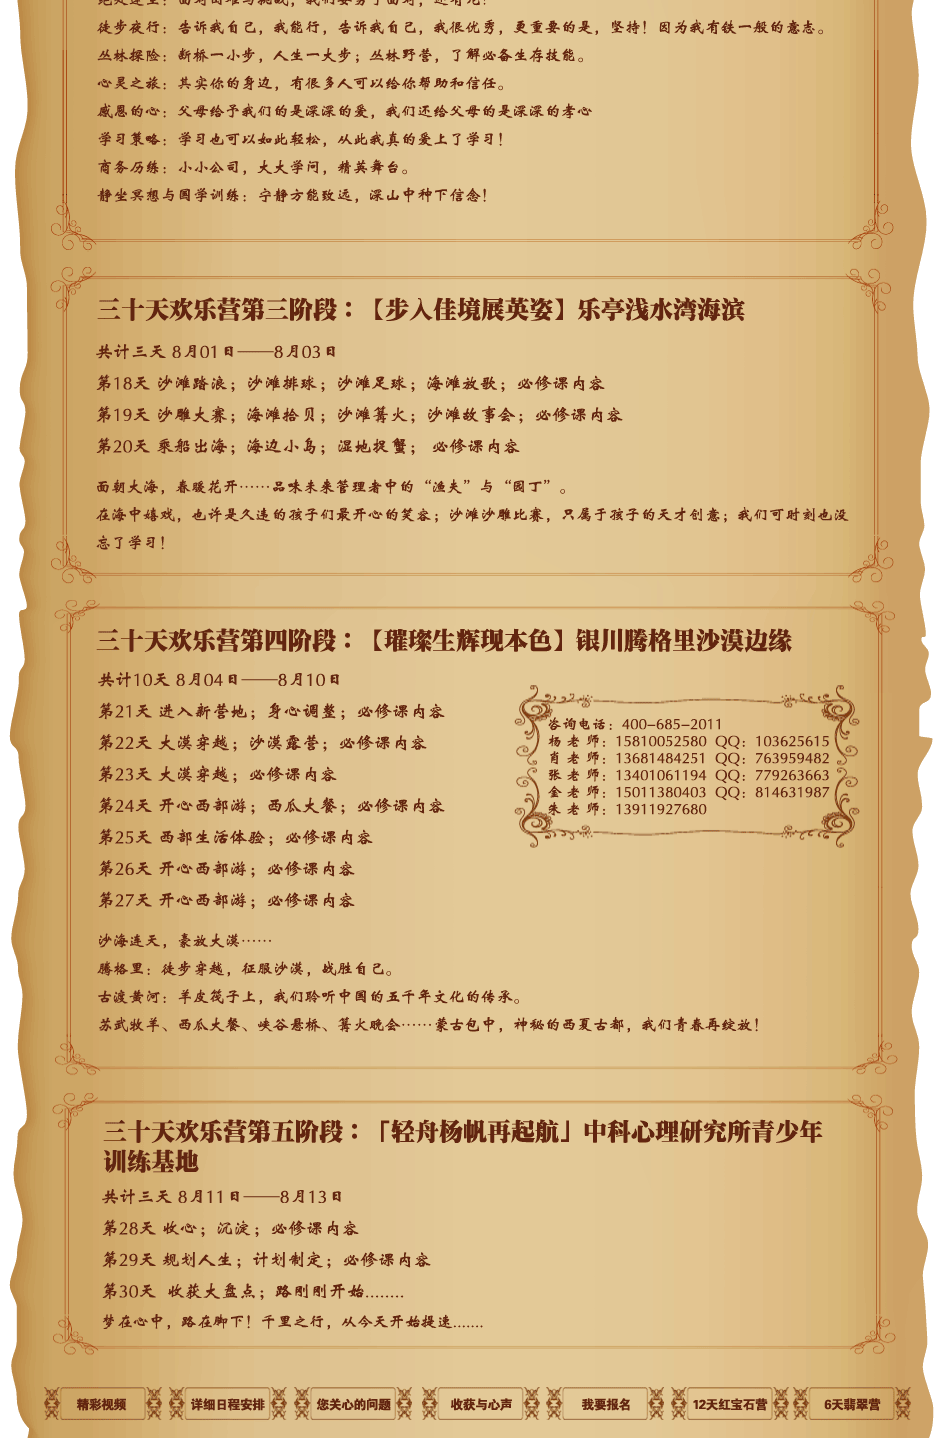 徒步夜行：告诉我自己，我能行，告诉我自己，我很优秀，更重要的是，坚持！因为我有铁一般的意志。
丛林探险：断桥一小步，人生一大步；丛林野营，了解必备生存技能。
心灵之旅：其实你的身边，有很多人可以给你帮助和信任。
感恩的心：父母给予我们的是深深的爱，我们还给父母的是深深的孝心
学习策略：学习也可以如此轻松，从此我真的爱上了学习！
商务历练：小小公司，大大学问，精英舞台。
静坐冥想与国学训练：宁静方能致远，深山中种下信念！
三十天欢乐营第三阶段：【步入佳境展英姿】乐亭浅水湾海滨
共计三天 8月01日——8月03日
第18天 沙滩踏浪；沙滩排球；沙滩足球；海滩放歌；必修课内容
第19天 沙雕大赛；海滩拾贝；沙滩篝火；沙滩故事会；必修课内容
第20天 乘船出海；海边小岛；湿地捉蟹； 必修课内容
面朝大海，春暖花开……品味未来管理者中的“渔夫”与“园丁”。
在海中嬉戏，也许是久违的孩子们最开心的笑容；沙滩沙雕比赛，只属于孩子的天才创意；我们可时刻也没
忘了学习！
三十天欢乐营第四阶段：【璀璨生辉现本色】银川腾格里沙漠边缘
共计10天 8月04日——8月10日
第21天 进入新营地；身心调整；必修课内容
第22天 大漠穿越；沙漠露营；必修课内容
第23天 大漠穿越；必修课内容
第24天 开心西部游；西瓜大餐；必修课内容
第25天 西部生活体验；必修课内容
第26天 开心西部游；必修课内容
第27天 开心西部游；必修课内容
咨询电话：400-685-2011
杨 老 师：15810052580 QQ：103625615
肖 老 师：13681484251 QQ：763959482
张 老 师：13401061194 QQ：779263663
金 老 师：15011380403 QQ：814631987
朱 老 师：13911927680
沙海连天，豪放大漠……
腾格里：徒步穿越，征服沙漠，战胜自己。
古渡黄河：羊皮筏子上，我们聆听中国的五千年文化的传承。
苏武牧羊、西瓜大餐、峡谷悬桥、篝火晚会……蒙古包中，神秘的西夏古都，我们青春再绽放！
三十天欢乐营第五阶段：「轻舟杨帆再起航」中科心理研究所青少年
训练基地
共计三天 8月11日——8月13日
第28天 收心；沉淀；必修课内容
第29天 规划人生；计划制定；必修课内容
第30天 收获大盘点；路刚刚开始........
梦在心中，路在脚下！千里之行，从今天开始提速.......
精彩视频 详细日程安排 您关心的问题 收获与心声 我要报名 12天红宝石营 6天翡翠营